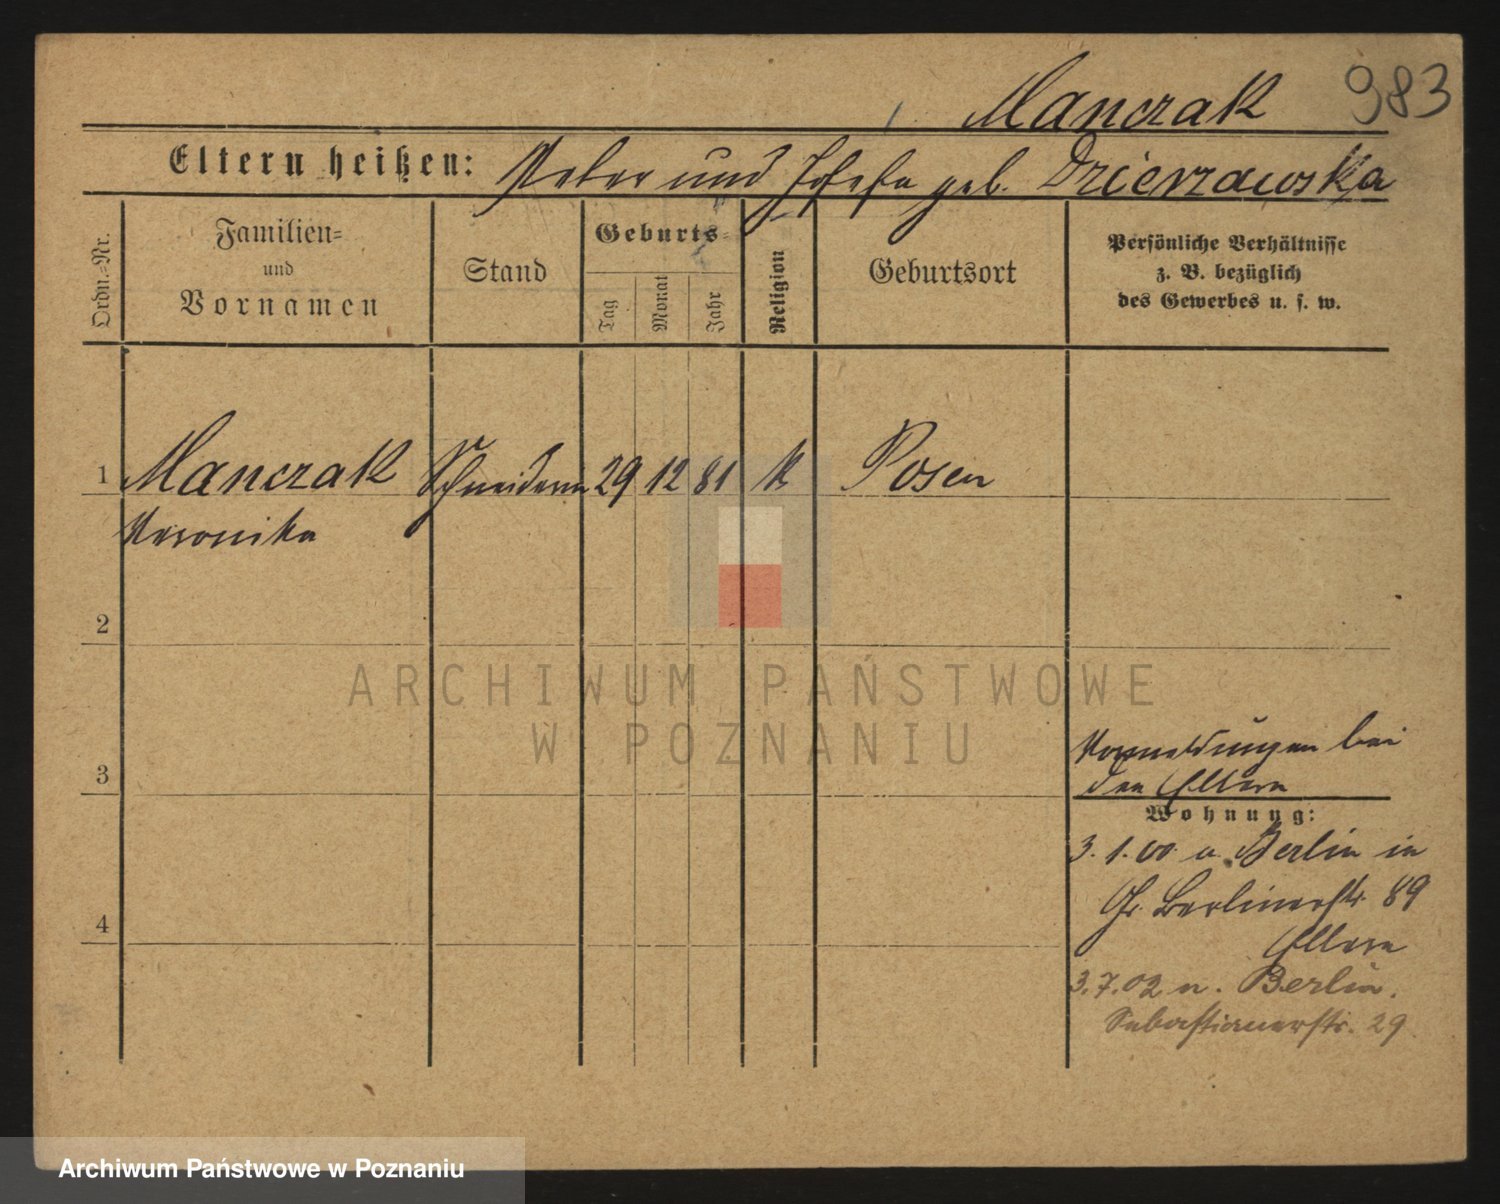 983
Manczak
Eltern heißen: Peter und Josefa geb. Dzierzawska
Ordn.=Nr.
Familien=
und
Vornamen
Stand
Geburts=
Tag
Monat
Jahr
Religion
Geburtsort
Persönliche Verhältnisse
z. B. bezüglich
des Gewerbes u. s. w.
1 Manczak Schneiderin 29 12 81 k Posen
Veronika
2
3
4
Vormeldungen bei
den Eltern
Wohnung:
3.1.00 a. Berlin in
Gr. Berlinerstr. 89
Eltern
3.7.02 n. Berlin,
Sebastianerstr. 29
ARCHIWUM PAŃSTWOWE
W POZNANIU
Archiwum Państwowe w Poznaniu